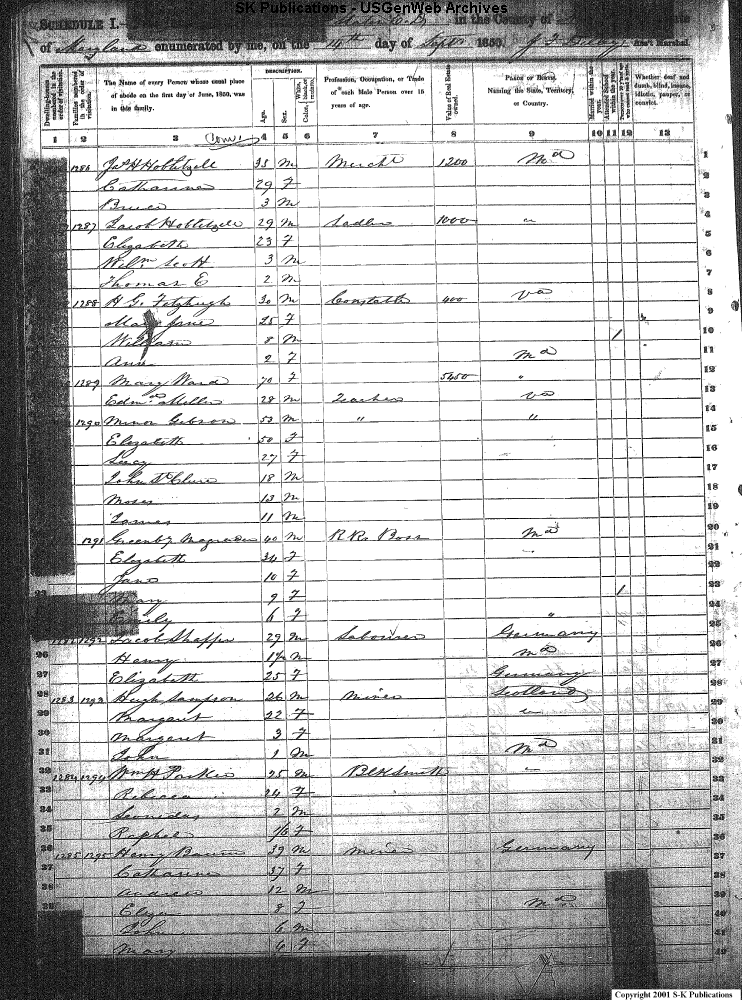 SK Publications - USGenWeb Archives
SCHEDULE I.— in the County of
of Maryland enumerated by me, on the 14th day of Septr 1850. Ass't Marshal.
Dwelling-houses numbered in the order of visitation.
Families numbered in the order of visitation.
The Name of every Person whose usual place of abode on the first day of June, 1850, was in this family.
DESCRIPTION.
Age.
Sex.
White, black, or mulatto.
Color,
Profession, Occupation, or Trade of each Male Person over 15 years of age.
Value of Real Estate owned.
PLACE OF BIRTH. Naming the State, Territory, or Country.
Married within the year.
Attended School within the year.
Whether deaf and dumb, blind, insane, idiotic, pauper, or convict.
1 2 3 4 5 6 7 8 9 10 11 12 13
1286 Jas H Hoblitzell 35 M Mercht 1200 Md 1
Catharine 29 F 2
Bruce 3 M 3
1287 Jacob Hoblitzell 29 M Sadler 1000 " 4
Elizabeth 23 F 5
Wilm Scott 3 M 6
Thomas E 2 M 7
1288 H G. Fitzhugh 30 M Constable 400 Va 8
Mary Jane 25 F 9
William 8 M 1 10
Ann 2 F Md 11
1289 Mary Ward 70 F 5450 " 12
Edmd Miller 28 M Teacher Va 13
1290 Minor Gibson 53 M " " 14
Elizabeth 50 F 15
Lucy 27 F 16
John McClure 18 M 17
Moses 13 M 18
James 11 M 19
1291 Greenby Magruder 40 M R R Boss Md 20
Elizabeth 34 F 21
Jane 10 F 22
Mary 9 F 1 23
Emily 6 F "
1292 Jacob Shaffer 29 M Labourer Germany 25
26 Henry M Md 26
27 Elizabeth 25 F Germany 27
28 1283 1293 Hugh Sampson 26 M Miner Scotland 28
29 Margaret 22 F " 29
30 Margaret 3 F 30
31 John 1 M Md 31
32 1284 1294 Wm H Parker 25 M Blksmith " 32
33 Rebecca 24 F 33
34 Leonidas 2 M
35 Raphel F
36 1285 1295 Henry Baum 39 M Miner Germany
37 Catharine 37 F 37
38 Andrew 12 M
Eliza 8 F Md
John 6 M
Mary 4 F
Copyright 2001 S-K Publications